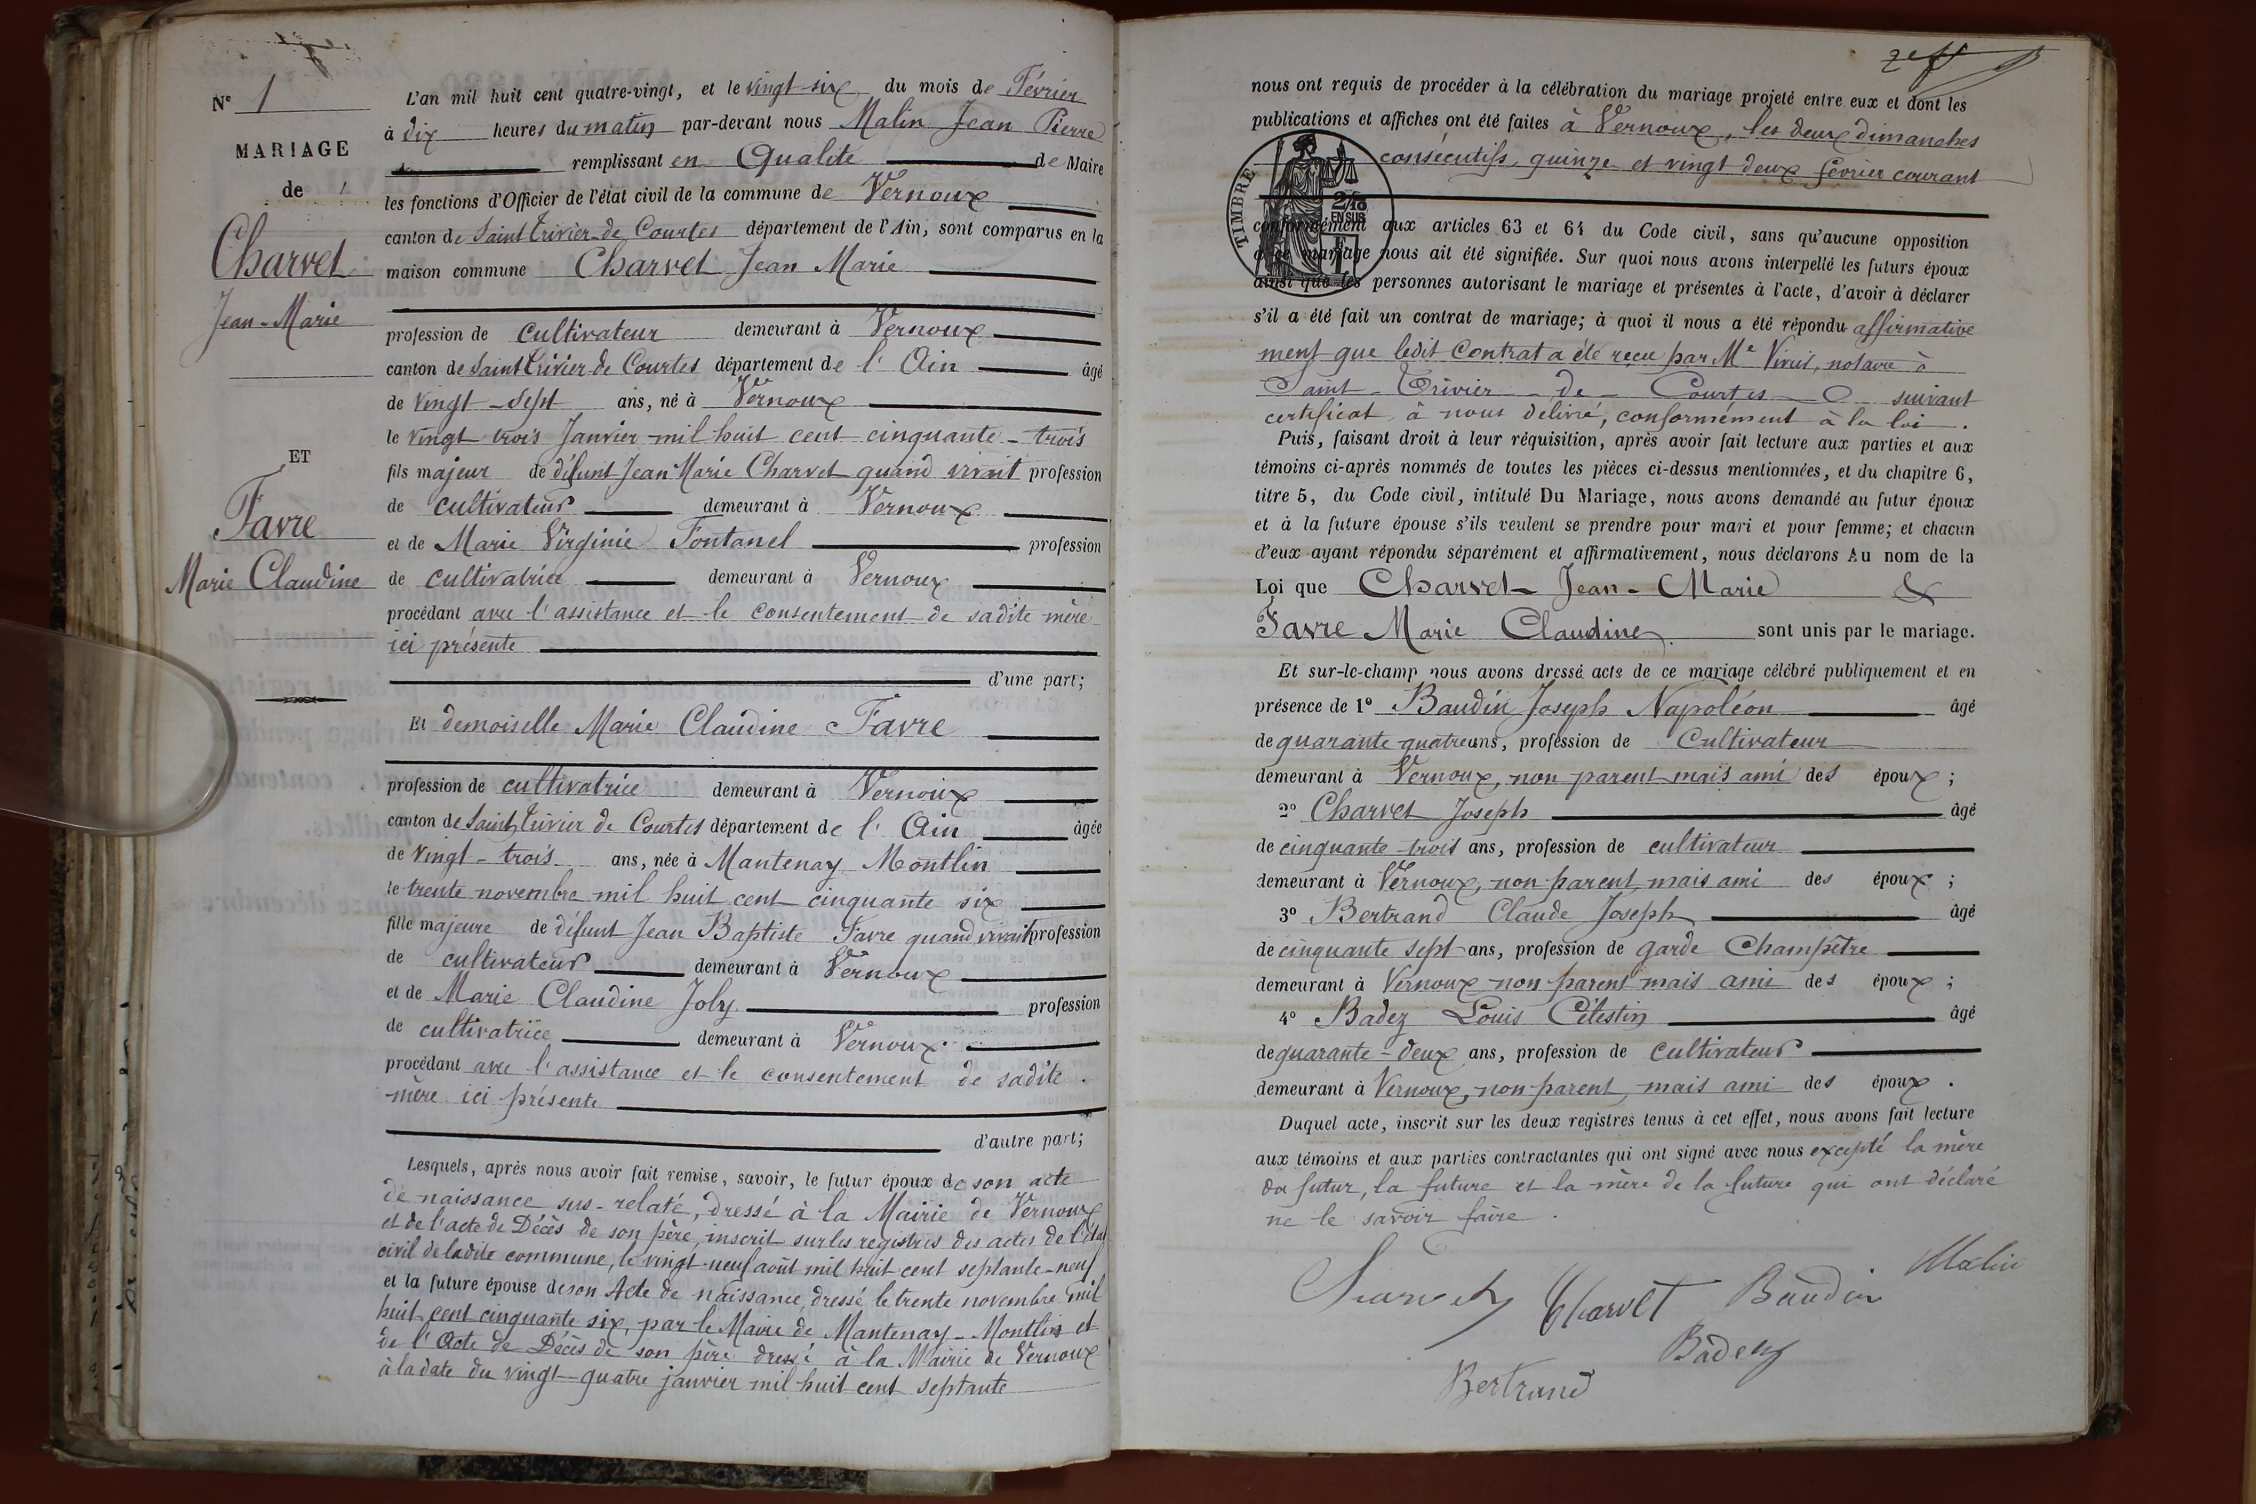 Nº 1
MARIAGE
de
Charvet
Jean-Marie
ET
Favre
Marie Claudine
L'an mil huit cent quatre-vingt, et le vingt-six du mois de Février
à dix heures du matin par-devant nous Malin Jean Pierre
remplissant en Qualité de Maire
les fonctions d'Officier de l'état civil de la commune de Vernoux
canton de Saint Trivier-de Courtes département de l'Ain, sont comparus en la
maison commune Charvet Jean Marie
profession de cultivateur demeurant à Vernoux
canton de Saint Trivier de Courtes département de l'Ain âgé
de vingt-sept ans, né à Vernoux
le vingt trois Janvier mil huit cent cinquante-trois
fils majeur de défunt Jean Marie Charvet quand vivait profession
de cultivateur demeurant à Vernoux
et de Marie Virginie Fontanel profession
de cultivatrice demeurant à Vernoux
procédant avec l'assistance et le consentement de sadite mère
ici présente
d'une part;
Et demoiselle Marie Claudine Favre
profession de cultivatrice demeurant à Vernoux
canton de Saint Trivier de Courtes département de l'Ain âgée
de vingt-trois ans, née à Mantenay Montlin
le trente novembre mil huit cent cinquante six
fille majeure de défunt Jean Baptiste Favre quand vivait profession
de cultivateur demeurant à Vernoux
et de Marie Claudine Joly profession
de cultivatrice demeurant à Vernoux
procédant avec l'assistance et le consentement de sadite
mère ici présente
d'autre part;
Lesquels, après nous avoir fait remise, savoir, le futur époux de son acte
de naissance sus-relaté, dressé à la Mairie de Vernoux
et de l'acte de Décès de son père, inscrit sur les registres des actes de l'état
civil de ladite commune, le vingt-neuf août mil huit cent septante-neuf
et la future épouse de son Acte de naissance, dressé le trente novembre mil
huit cent cinquante six, par le Maire de Mantenay-Montlin et
de l'Acte de Décès de son père dressé à la Mairie de Vernoux
à la date du vingt-quatre janvier mil huit cent septante
nous ont requis de procéder à la célébration du mariage projeté entre eux et dont les
publications et affiches ont été faites à Vernoux, les deux dimanches
consécutifs, quinze et vingt deux février courant
TIMBRE
2/10
EN SUS
conformément aux articles 63 et 64 du Code civil, sans qu'aucune opposition
à ce mariage nous ait été signifiée. Sur quoi nous avons interpellé les futurs époux
ainsi que les personnes autorisant le mariage et présentes à l'acte, d'avoir à déclarer
s'il a été fait un contrat de mariage; à quoi il nous a été répondu affirmative
ment que ledit Contrat a été reçu par Me notaire à
Saint-Trivier-de-Courtes suivant
certificat à nous délivré, conformément à la loi.
Puis, faisant droit à leur réquisition, après avoir fait lecture aux parties et aux
témoins ci-après nommés de toutes les pièces ci-dessus mentionnées, et du chapitre 6,
titre 5, du Code civil, intitulé Du Mariage, nous avons demandé au futur époux
et à la future épouse s'ils veulent se prendre pour mari et pour femme; et chacun
d'eux ayant répondu séparément et affirmativement, nous déclarons Au nom de la
Loi que Charvet-Jean-Marie &
Favre Marie Claudine sont unis par le mariage.
Et sur-le-champ nous avons dressé acte de ce mariage célébré publiquement et en
présence de 1º Baudin Joseph Napoléon âgé
de quarante quatre ans, profession de Cultivateur
demeurant à Vernoux, non parent mais ami des époux;
2º Charvet Joseph âgé
de cinquante-trois ans, profession de cultivateur
demeurant à Vernoux, non parent, mais ami des époux;
3º Bertrand Claude Joseph âgé
de cinquante sept ans, profession de garde Champêtre
demeurant à Vernoux non parent mais ami des époux;
4º Badez Louis Célestin âgé
de quarante-deux ans, profession de cultivateur
demeurant à Vernoux, non parent, mais ami des époux.
Duquel acte, inscrit sur les deux registres tenus à cet effet, nous avons fait lecture
aux témoins et aux parties contractantes qui ont signé avec nous excepté la mère
du futur, la future et la mère de la future qui ont déclaré
ne le savoir faire.
Malin
Charvet Baudin
Badez
Bertrand